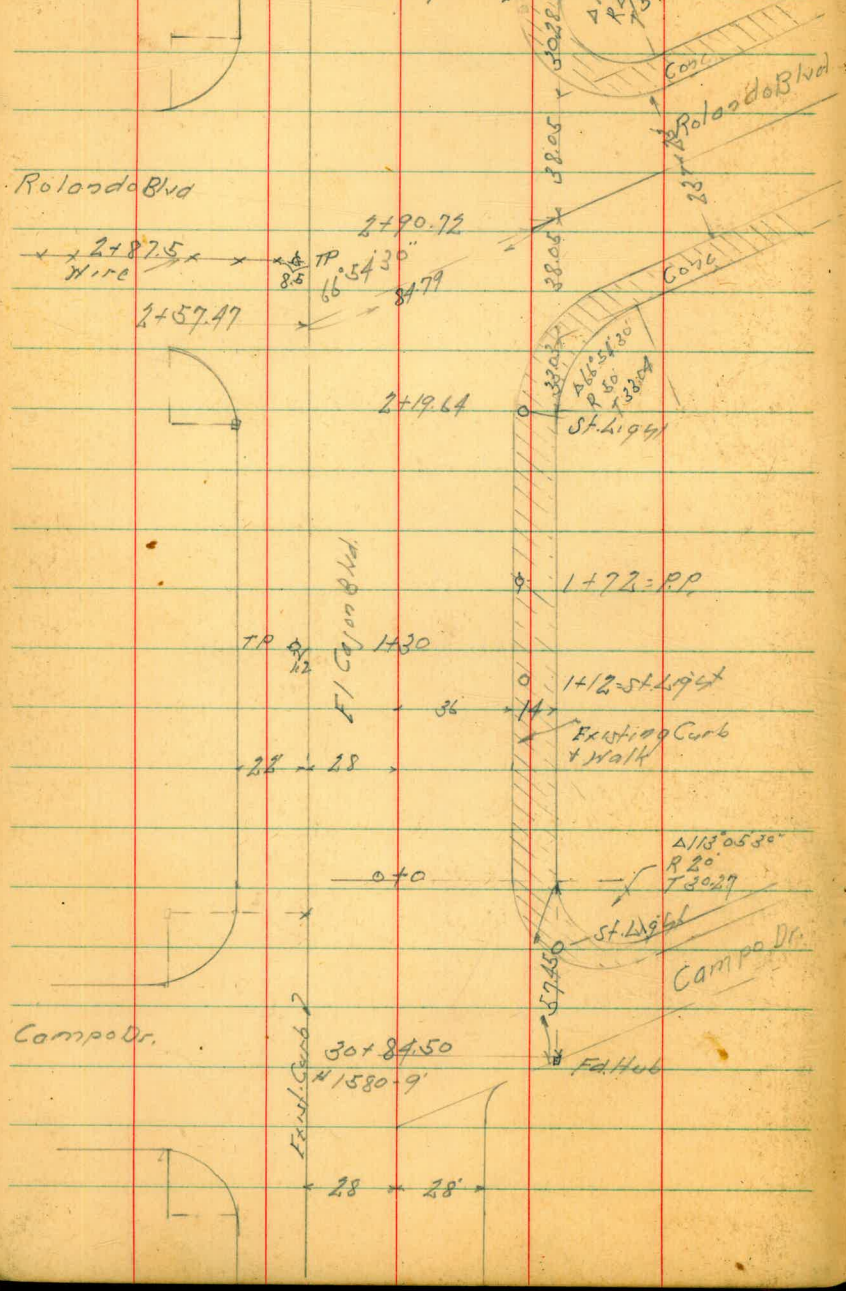 Δ
R
T
30.28
Conc
Rolando Blvd
38.05
Rolando Blvd
2+90.72
38.05
2+87.5
Wire
8.5
TP
66°54'30"
84.79
Conc
2+57.47
33.03
Δ66°54'30"
R 50'
T 33.04
2+19.64
St. Light
El Cajon Blvd.
1+72=P.P.
TP
1.2
1+30
1+12=St. Light
36
14
Existing Curb
+ Walk
22
28
Δ113°05'30"
R 20'
T 30.27
0+0
St. Light
Campo Dr.
57.450
Campo Dr.
Exist. Curb
30+84.50
#1580-9'
Fd. Hub
28
28'